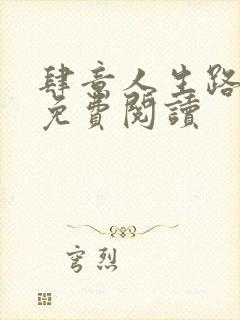 肆意人生路
免費閱讀
穹烈